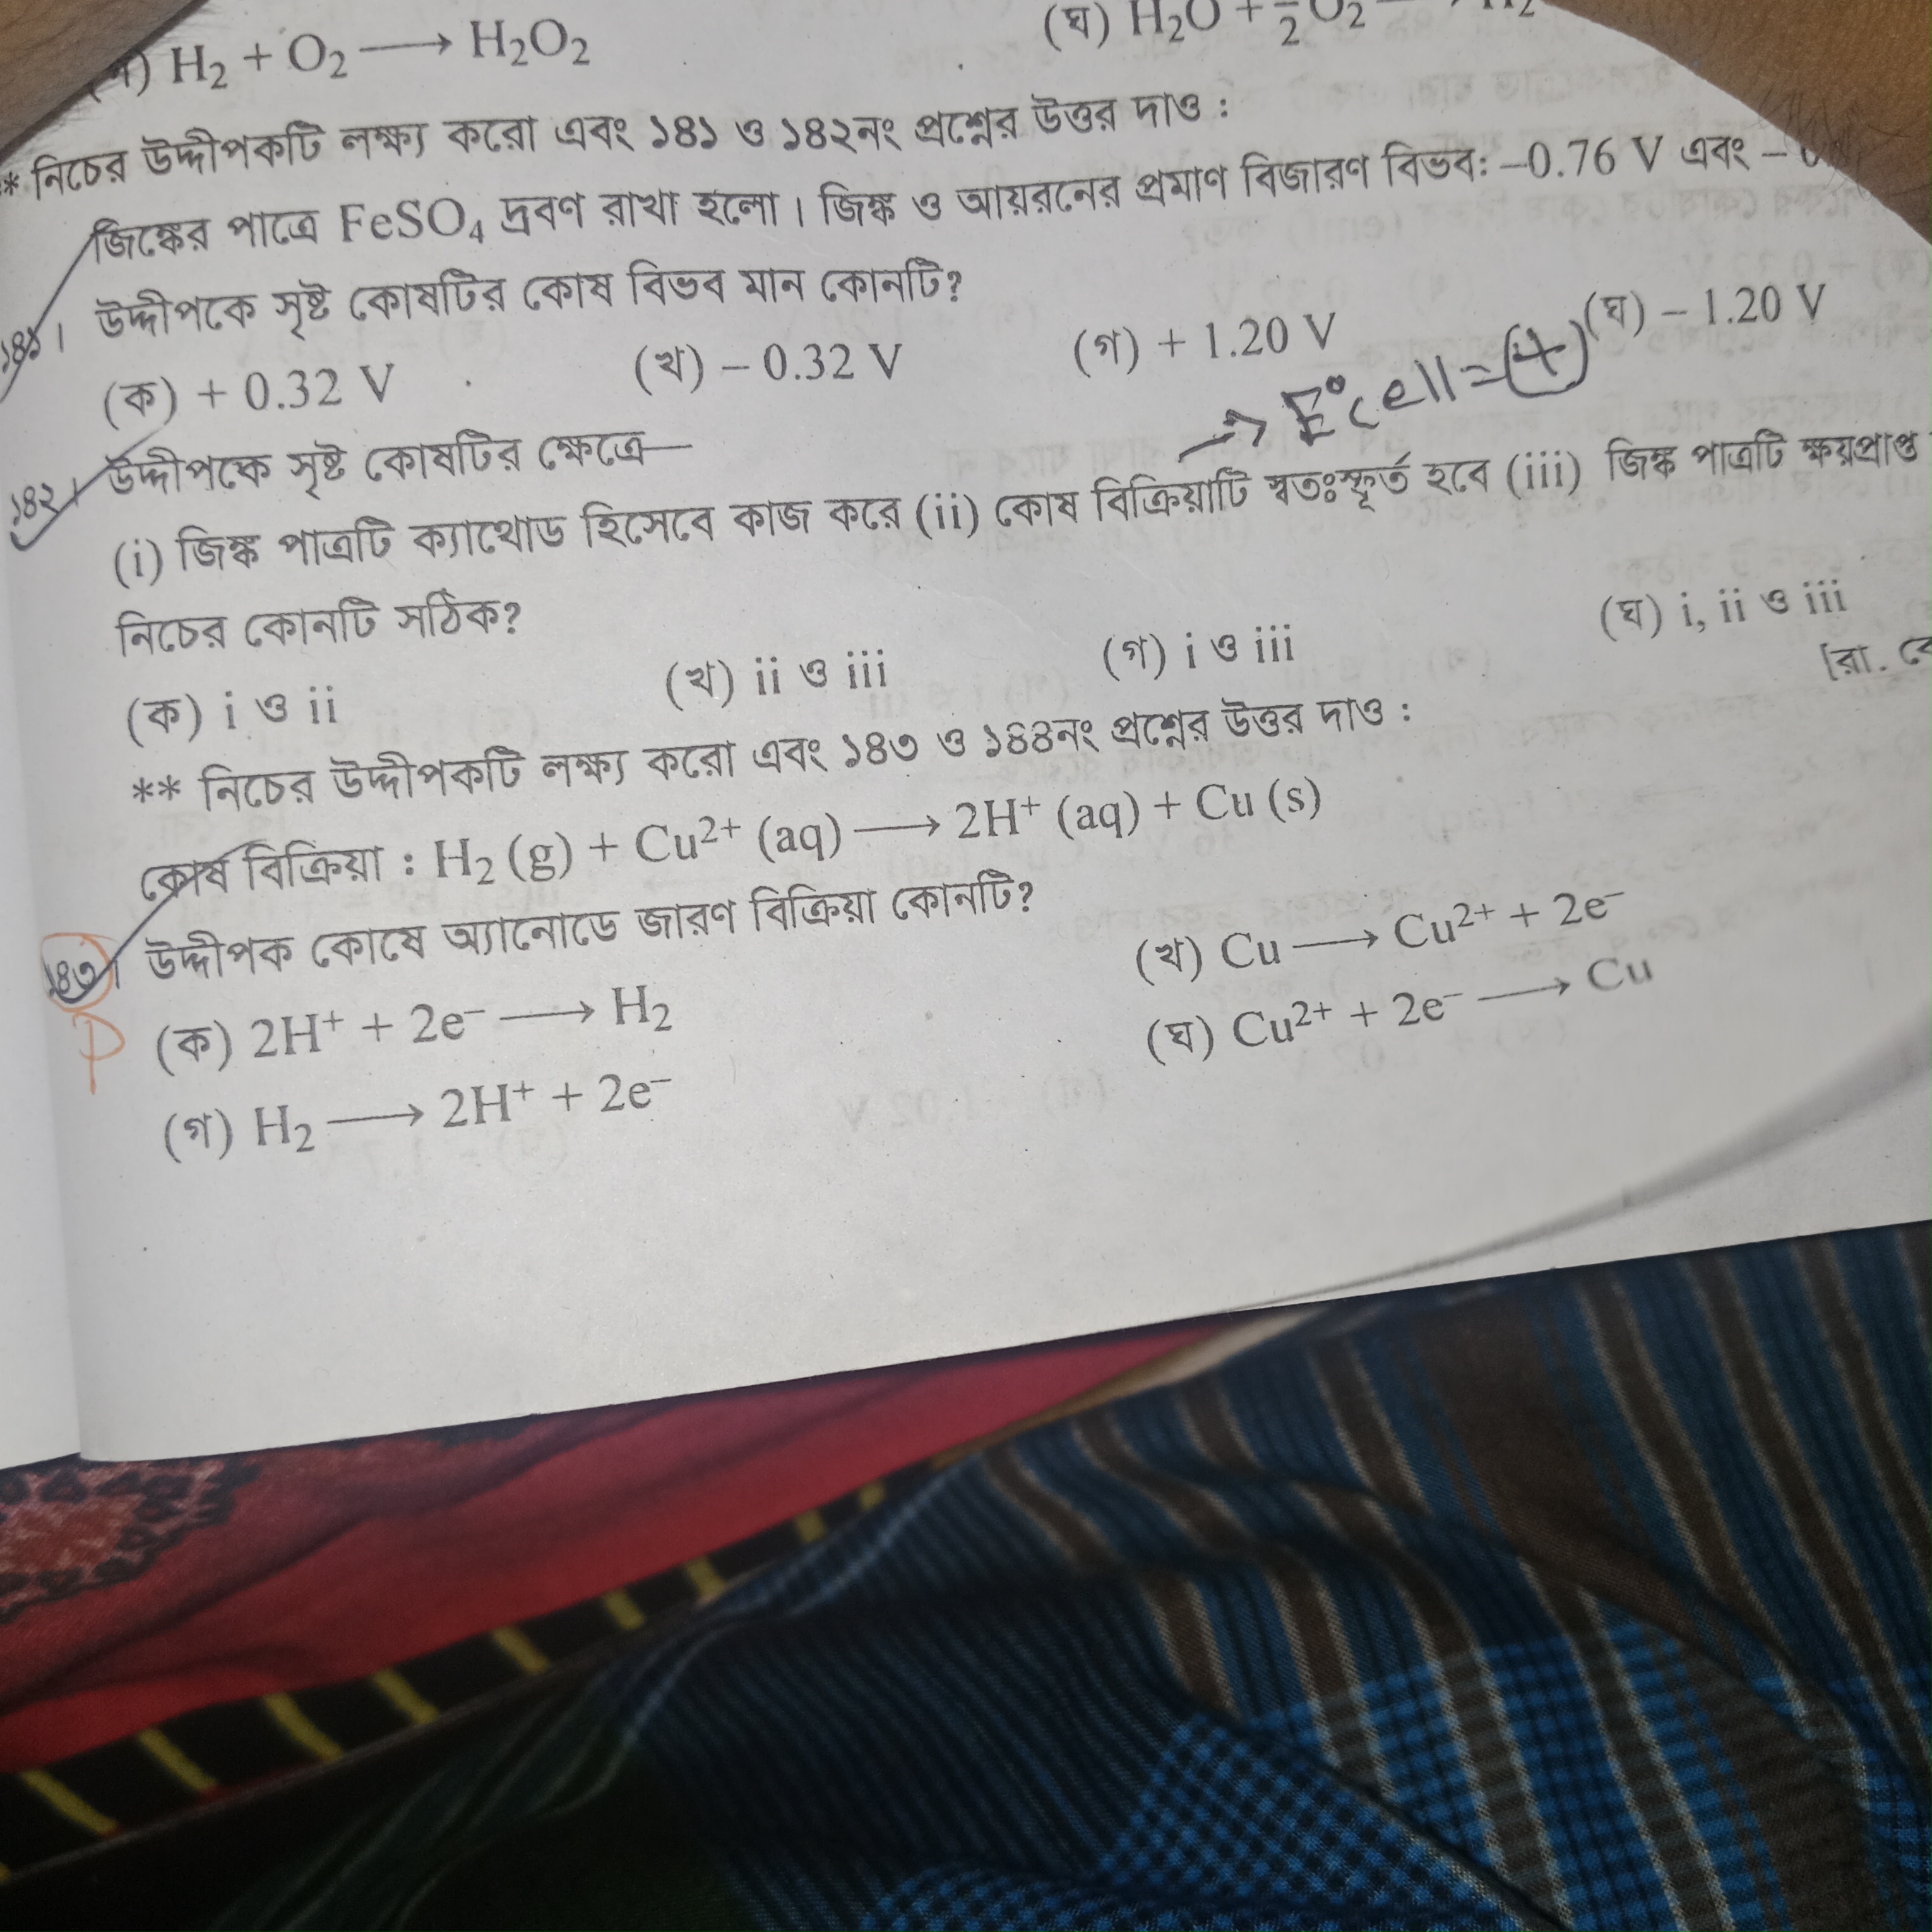 H₂ + O₂ ⟶ H₂O₂ (ঘ) H₂O +
** নিচের উদ্দীপকটি লক্ষ্য করো এবং ১৪১ ও ১৪২নং প্রশ্নের উত্তর দাও :
জিঙ্কের পাত্রে FeSO₄ দ্রবণ রাখা হলো। জিঙ্ক ও আয়রনের প্রমাণ বিজারণ বিভব: –0.76 V এবং –
১৪১। উদ্দীপকে সৃষ্ট কোষটির কোষ বিভব মান কোনটি?
(ক) + 0.32 V (খ) – 0.32 V (গ) + 1.20 V (ঘ) – 1.20 V
→ E°cell = (+)
১৪২। উদ্দীপকে সৃষ্ট কোষটির ক্ষেত্রে—
(i) জিঙ্ক পাত্রটি ক্যাথোড হিসেবে কাজ করে (ii) কোষ বিক্রিয়াটি স্বতঃস্ফূর্ত হবে (iii) জিঙ্ক পাত্রটি ক্ষয়প্রাপ্ত
নিচের কোনটি সঠিক?
(ক) i ও ii (খ) ii ও iii (গ) i ও iii (ঘ) i, ii ও iii
[রা.
** নিচের উদ্দীপকটি লক্ষ্য করো এবং ১৪৩ ও ১৪৪নং প্রশ্নের উত্তর দাও :
কোষ বিক্রিয়া : H₂ (g) + Cu²⁺ (aq) ⟶ 2H⁺ (aq) + Cu (s)
১৪৩। উদ্দীপক কোষে অ্যানোডে জারণ বিক্রিয়া কোনটি?
(ক) 2H⁺ + 2e⁻ ⟶ H₂ (খ) Cu ⟶ Cu²⁺ + 2e⁻
P
(গ) H₂ ⟶ 2H⁺ + 2e⁻ (ঘ) Cu²⁺ + 2e⁻ ⟶ Cu